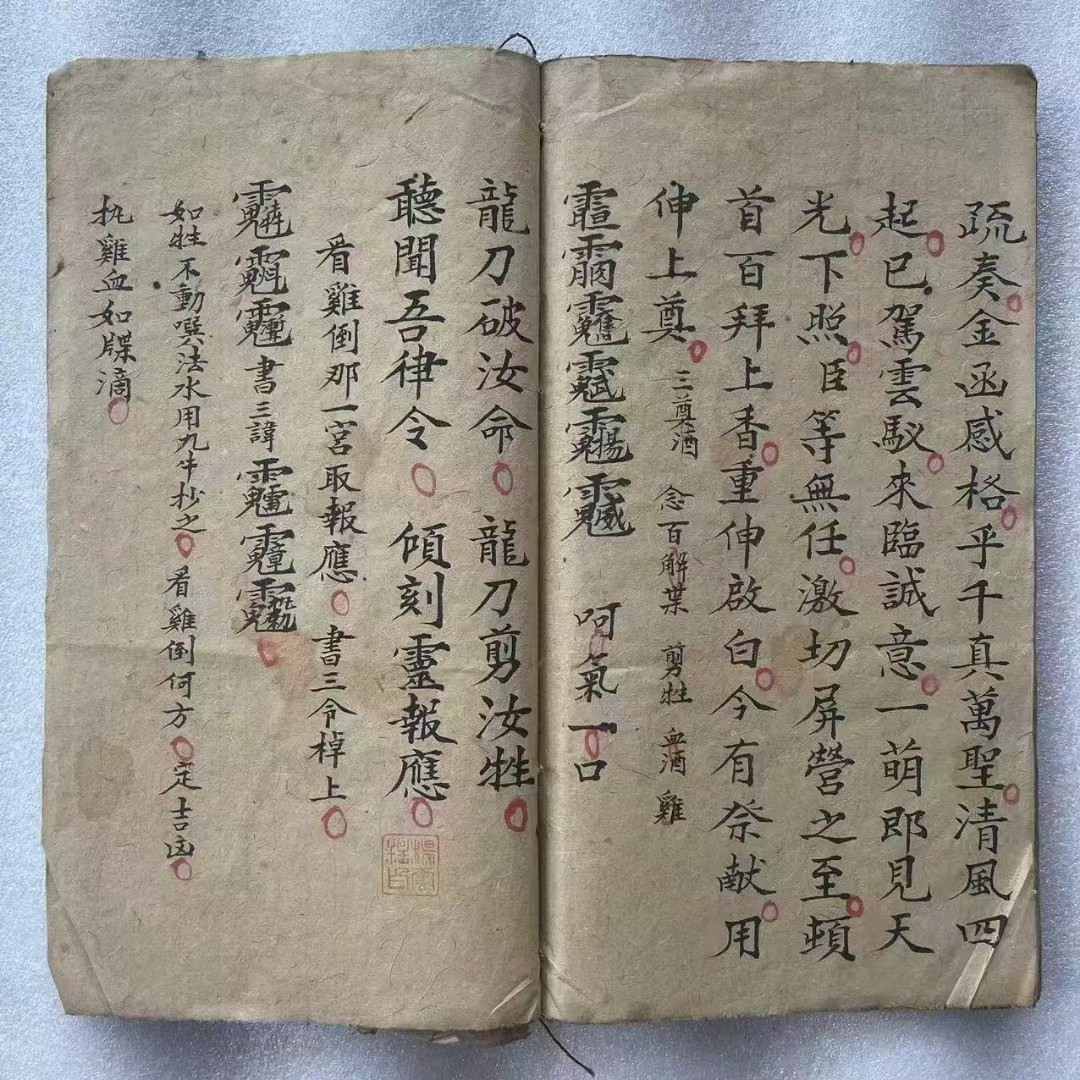 疏奏金函感格乎千真萬聖清風四
起已駕雲馭來臨誠意一萌郎見天
光下照臣等無任激切屏營之至頓
首百拜上香重伸啟白今有祭献用
伸上尊 三奠酒 念百解葉 剪牲 血酒 雞
呵氣一口
龍刀破汝命 龍刀剪汝牲
聽聞吾律令 傾刻靈報應
看雞倒那一宮取報應 書三令棹上
書三諱
如牲不動噀法水用九牛抄之 看雞倒何方 定吉凶
扖雞血如牒滴